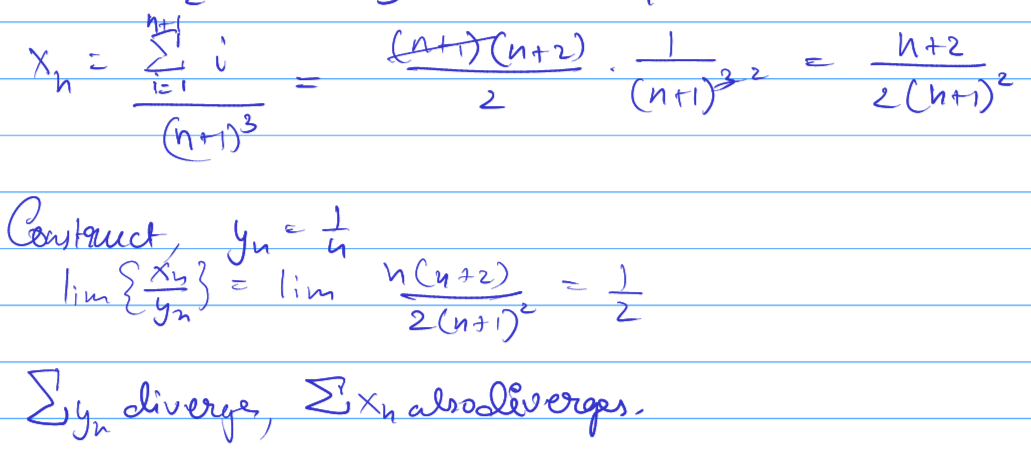 x_n = \frac{\sum_{i=1}^{n+1} i}{(n+1)^3} = \frac{(n+1)(n+2)}{2} \cdot \frac{1}{(n+1)^{3 2}} = \frac{n+2}{2(n+1)^2}
Construct, y_n = \frac{1}{n}
lim {\frac{x_n}{y_n}} = lim \frac{n(n+2)}{2(n+1)^2} = \frac{1}{2}
\sum y_n diverge, \sum x_n also diverges.